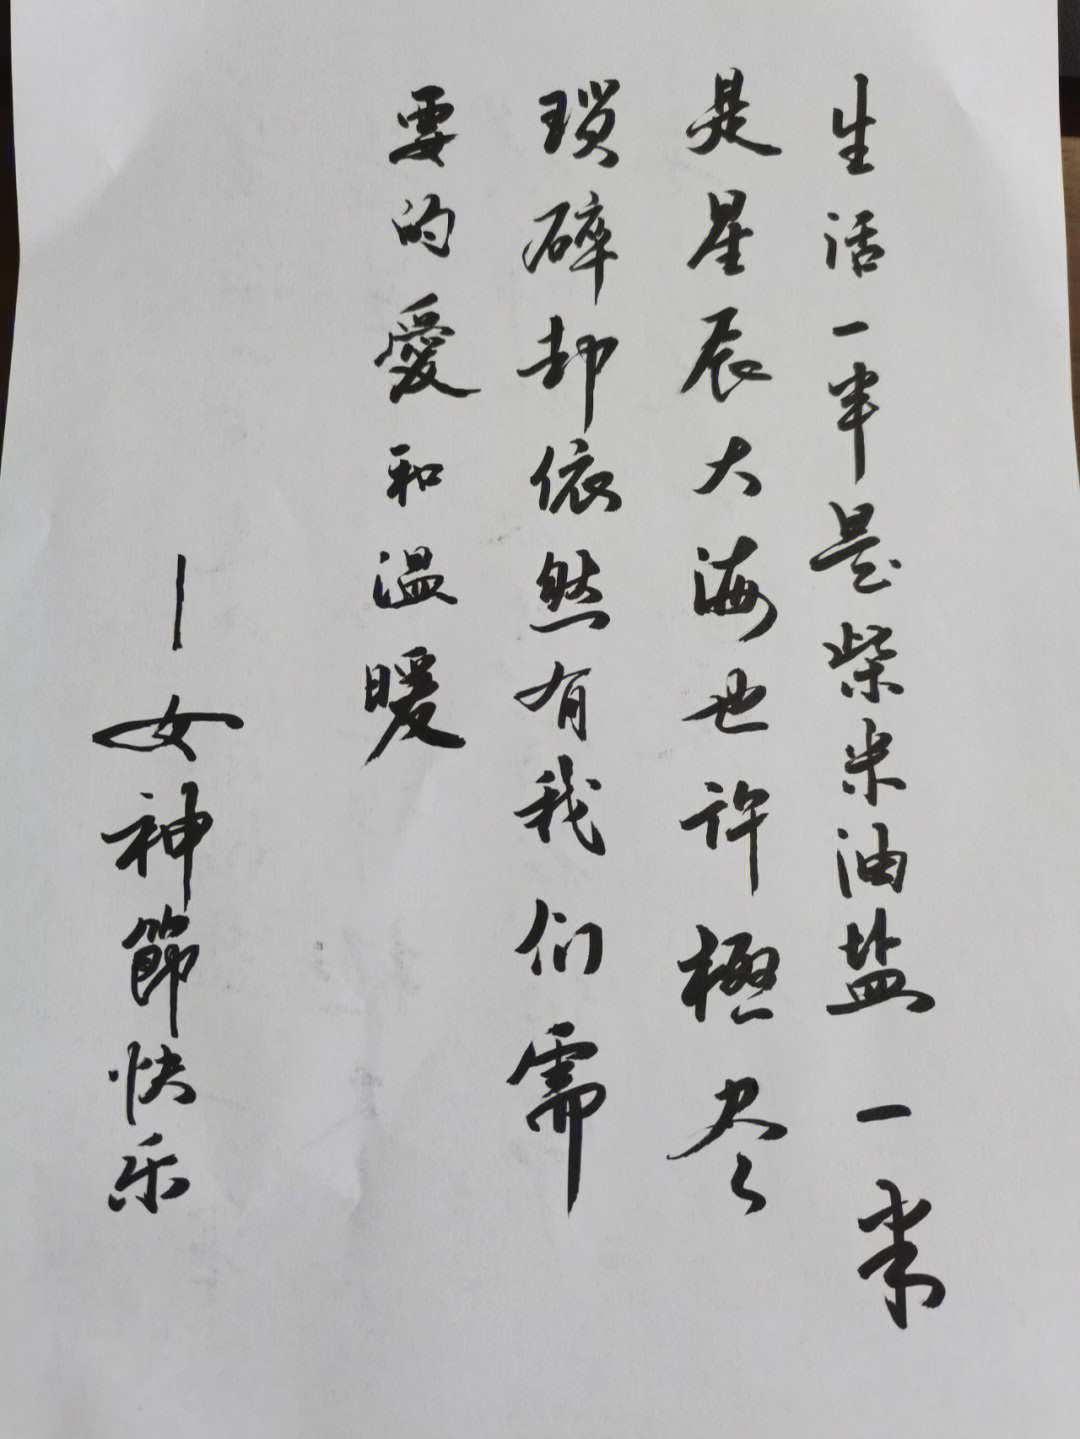 生活一半是柴米油盐一半
是星辰大海也许極尽
琐碎却依然有我们需
要的愛和温暖
—女神節快乐